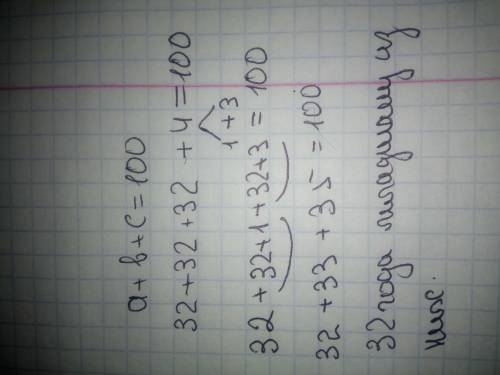 a + b + c = 100
32 + 32 + 32 + 4 = 100
1 + 3
32 + 32+1 + 32+3 = 100
32 + 33 + 35 = 100
32 года младшему из
них.